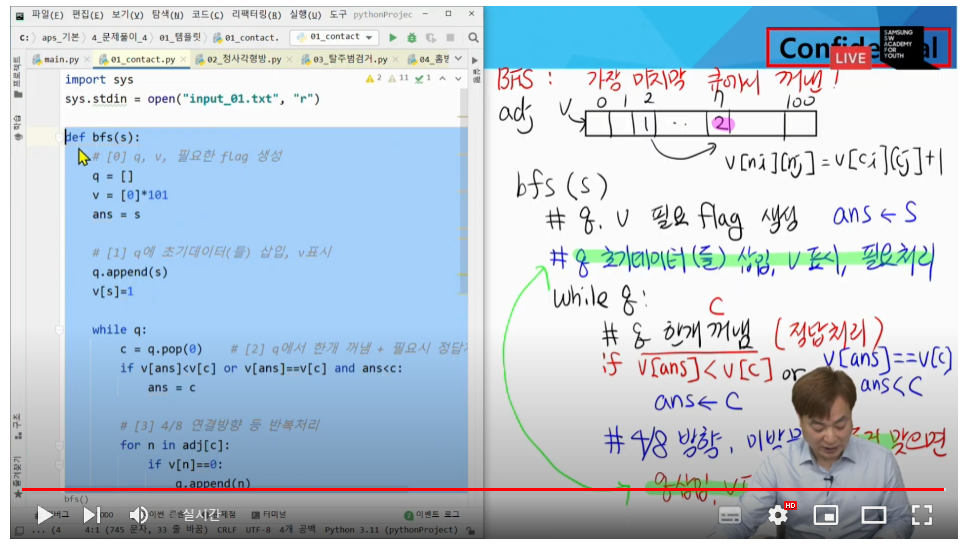 파일(F) 편집(E) 보기(V) 탐색(N) 코드(C) 리팩터링(R) 실행(U) 도구 pythonProjec
C: aps_기본 4_문제풀이_4 01_템플릿 01_contact. 01_contact
main.py 01_contact.py 02_청사각형방.py 03_탈주범검거.py
프로젝트
학습
구조
즐겨찾기
알림
2 11 1
import sys
sys.stdin = open("input_01.txt", "r")
def bfs(s):
# [0] q, v, 필요한 flag 생성
q = []
v = [0]*101
ans = s
# [1] q에 초기데이터(들) 삽입, v표시
q.append(s)
v[s]=1
while q:
c = q.pop(0) # [2] q에서 한개 꺼냄 + 필요시 정답
if v[ans]<v[c] or v[ans]==v[c] and ans<c:
ans = c
# [3] 4/8 연결방향 등 반복처리
for n in adj[c]:
if v[n]==0:
q.append(n)
bfs()
실시간
터미널
이벤트 로그
4:1 (745 문자, 33 줄 바꿈) CRLF UTF-8 4개 공백 Python 3.11 (pythonProject)
SAMSUNG
SW
ACADEMY
FOR
YOUTH
LIVE
BFS : 가장 마지막 큐에서 꺼낸!
adj V 0 1 2 n 100
1 .. 2
v[ni][nj] = v[ci][cj]+1
bfs(s)
# q, v 필요 flag 생성 ans ← S
# q 초기데이터(들) 삽입, v 표시, 필요처리
while q:
C
# q 한개 꺼냄 (정답처리)
if v[ans]<v[c] or v[ans]==v[c]
ans<c
ans ← C
# 4/8 방향, 맞으면
q삽입,
HD